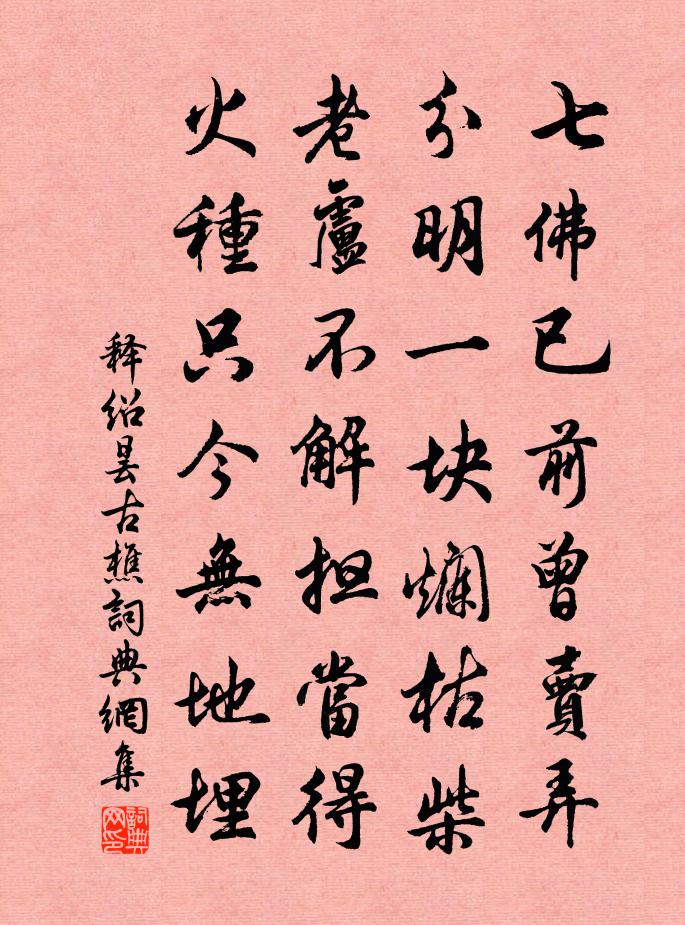 七佛已前曾賣弄
分明一块爛枯柴
老盧不解担當得
火種只今無地埋
释绍昙古樵詞典網集
詞典网印